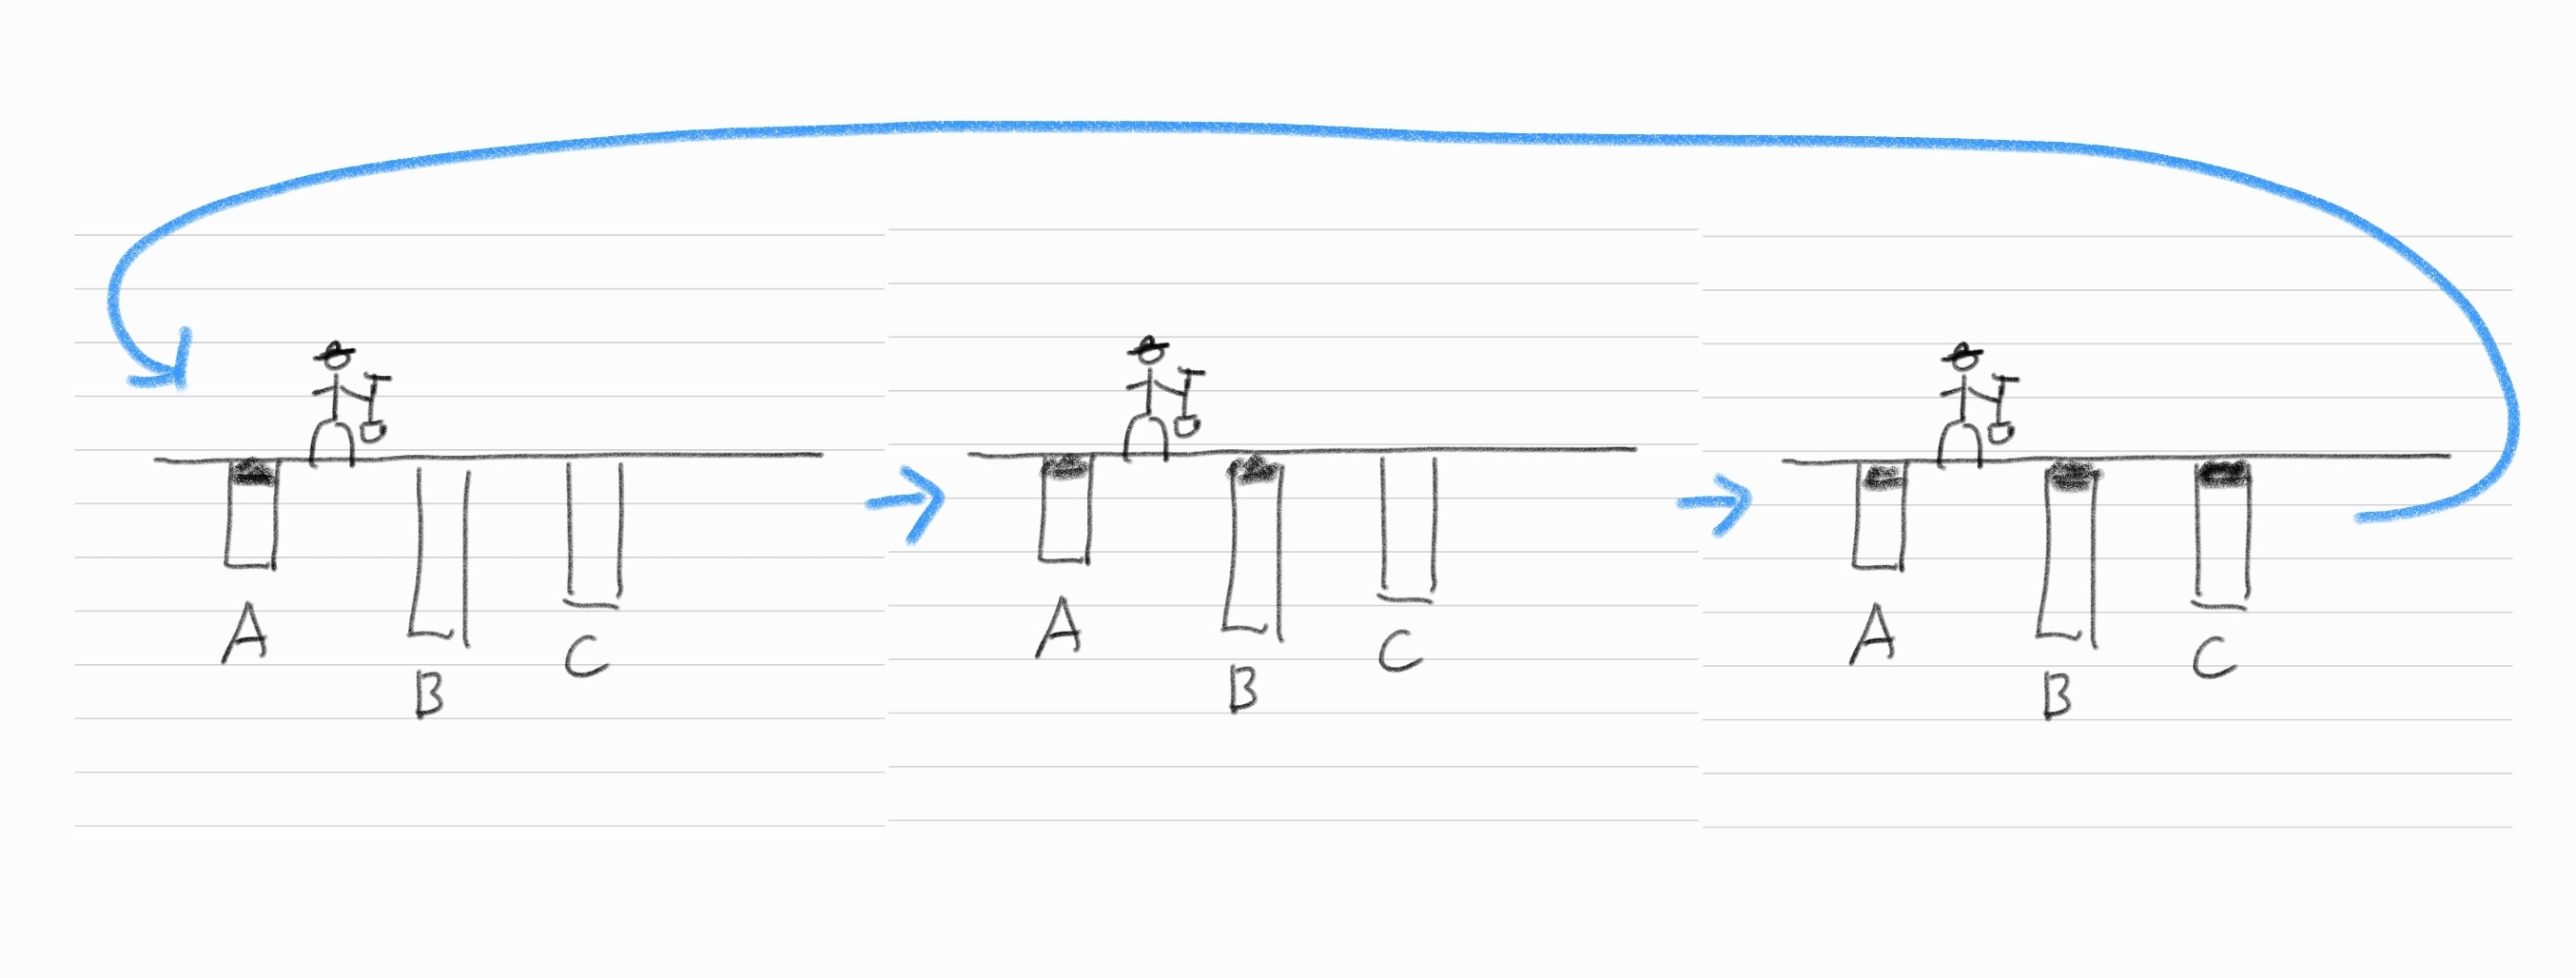 A
B
C
A
B
C
A
B
C